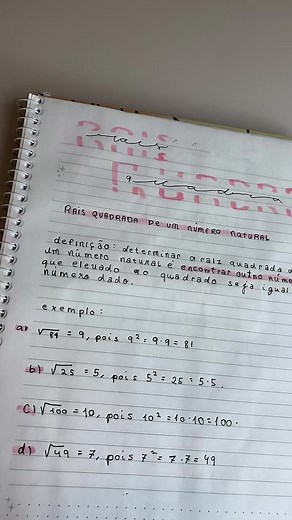 raiz
quadrada
RAIS QUADRADA DE UM NÚMERO NATURAL
definição: determinar a raiz quadrada d
um número natural é encontrar outro núme
que elevado ao quadrado seja igual
número dado.
exemplo:
a) √81 = 9, pois 9² = 9·9 = 81
b) √25 = 5, pois 5² = 25 = 5·5.
c) √100 = 10, pois 10² = 10·10 = 100.
d) √49 = 7, pois 7² = 7·7 = 49